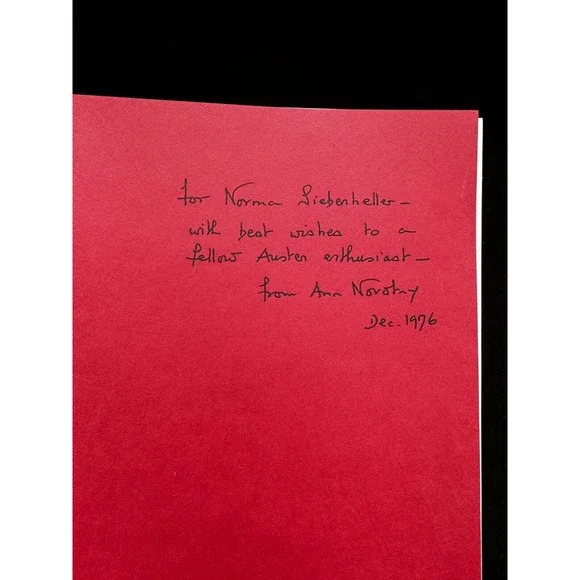 for Norma Siebenheller –
with best wishes to a
fellow Austen enthusiast –
from Ann Novotny
Dec. 1976